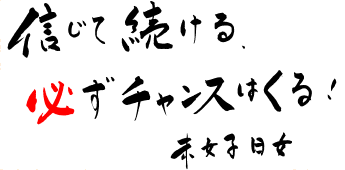 信じて続ける、
必ずチャンスはくる!
未女子日女